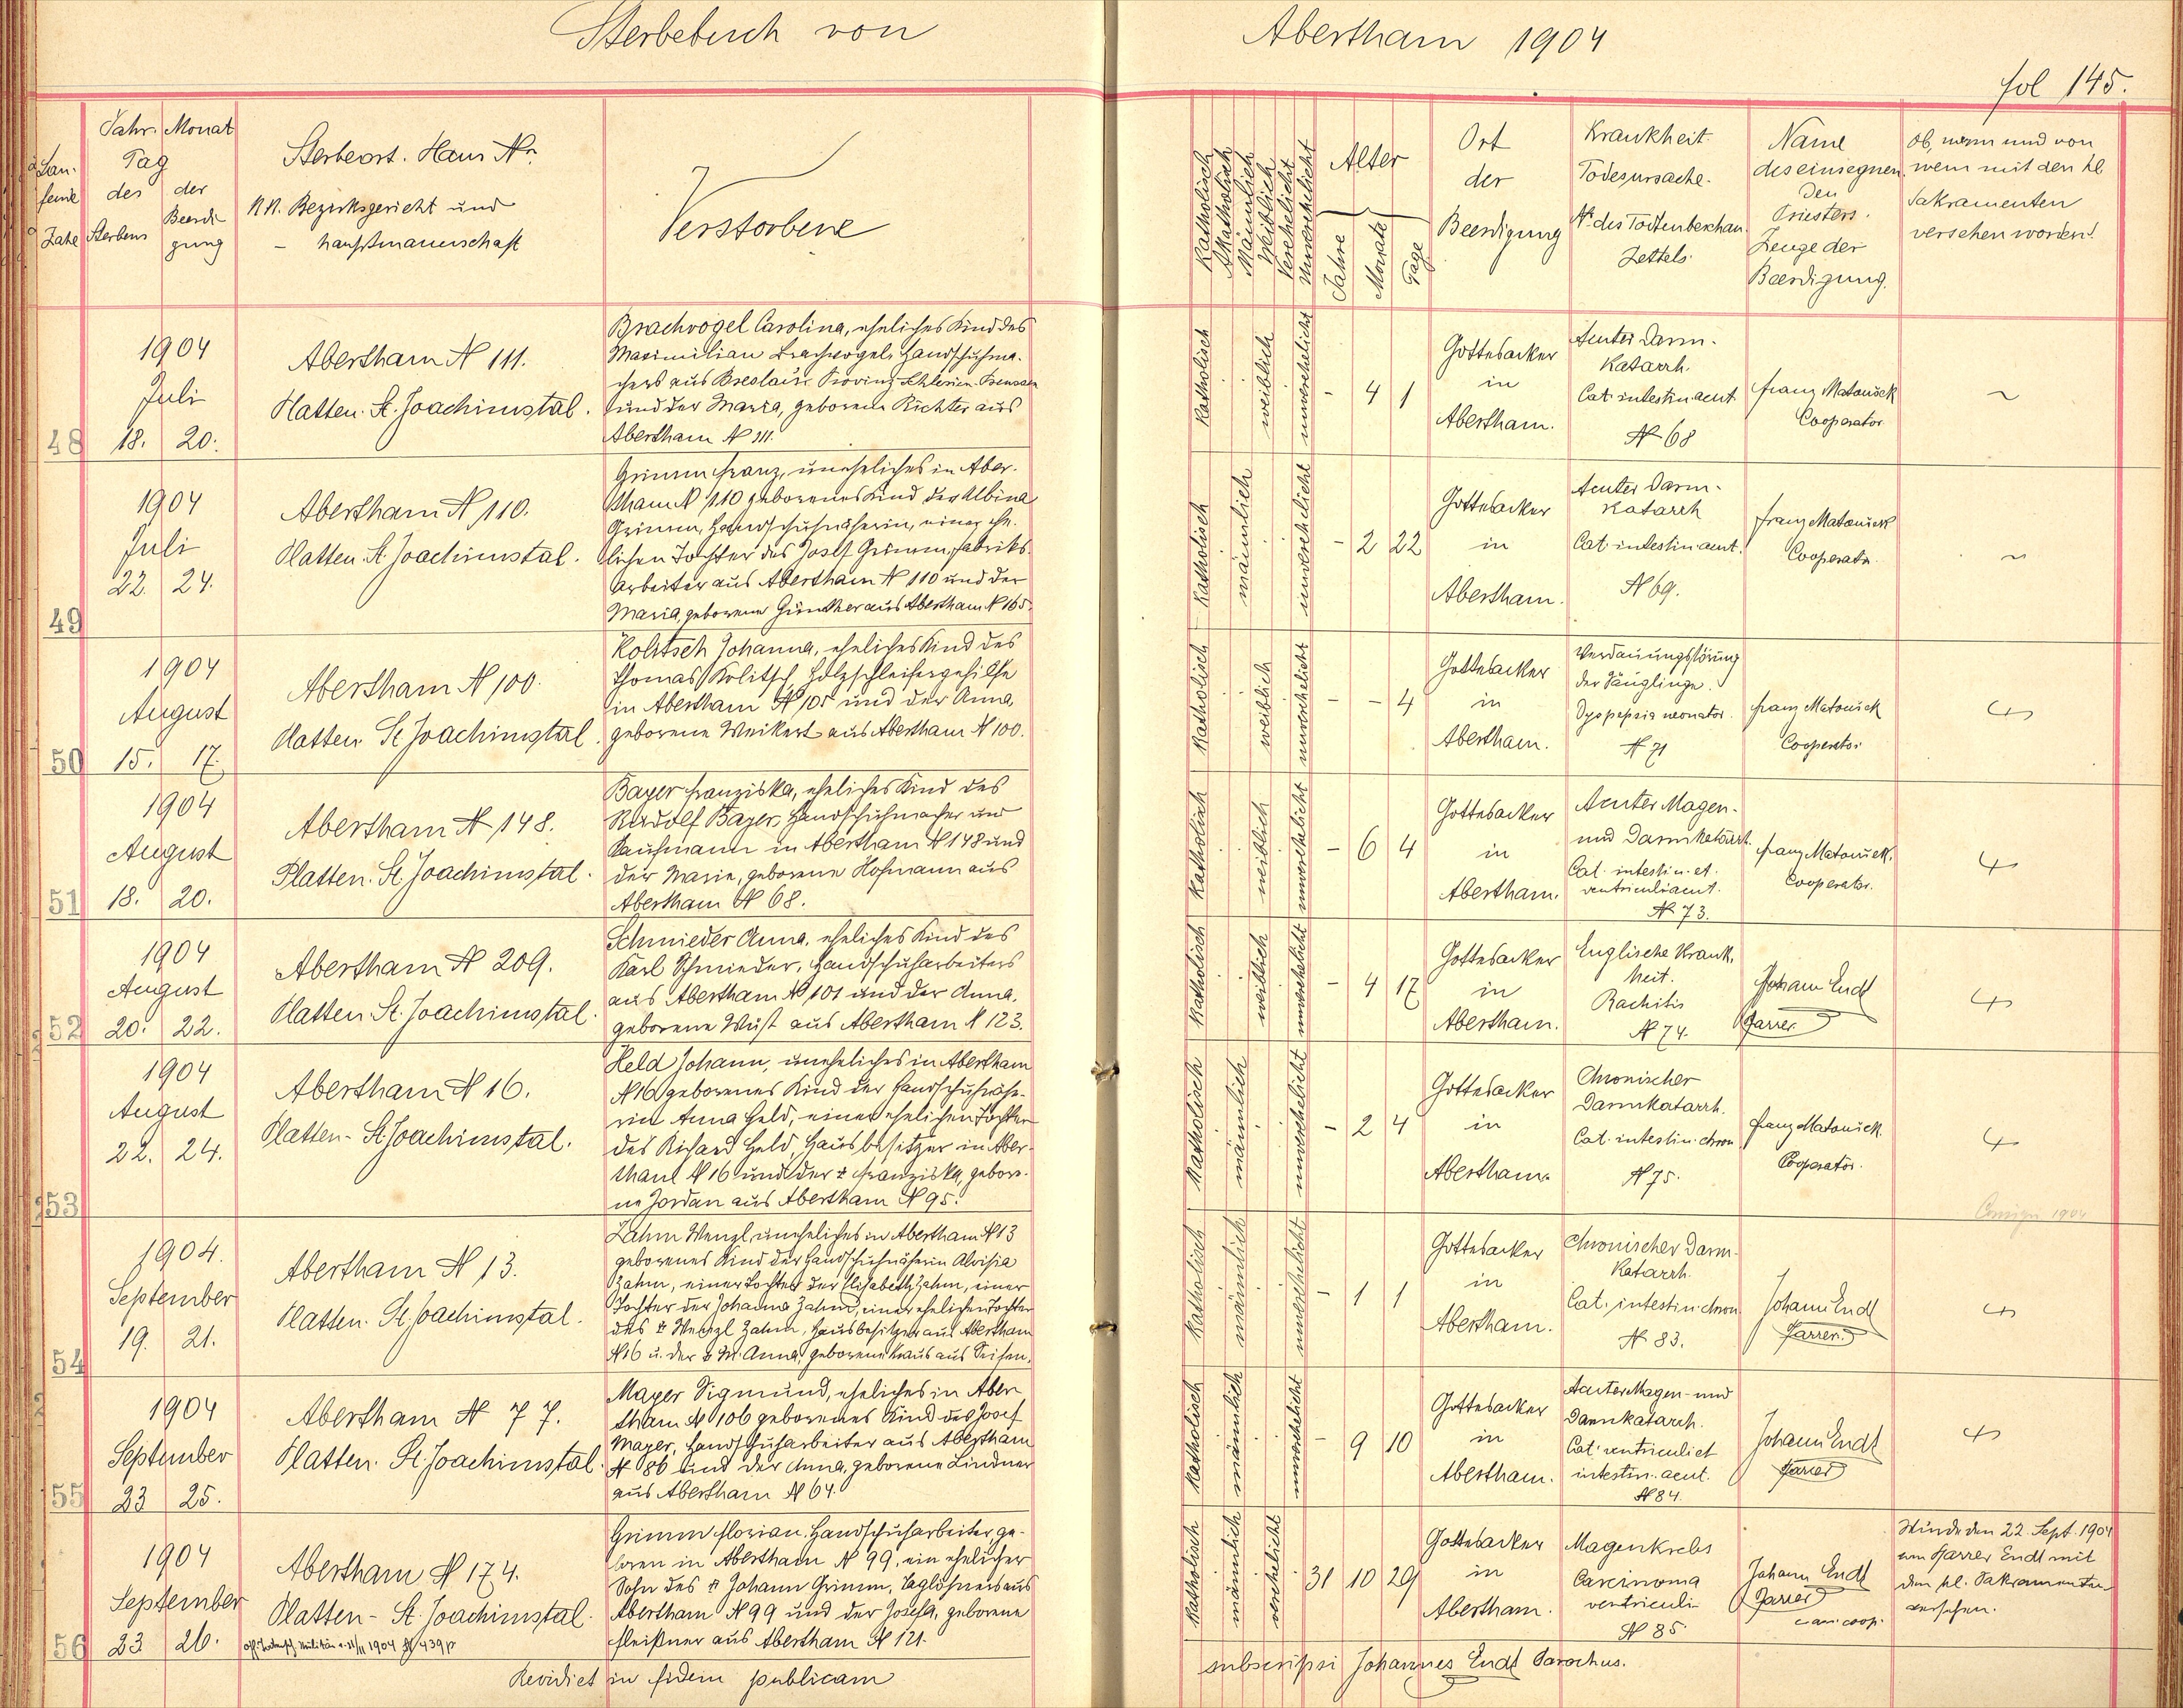 Sterbebuch von Abertham 1904
fol 145.
Jahr. Monat
Tag
des der
Sterbens Beerdi
gung
Sterbeort. Haus Nr.
K.K. Bezirksgericht und
- hauptmannschaft
Verstorbene
Katholisch
Akatholisch
Männlich
Weiblich
Verehelicht
Unverehelicht
Alter
Jahre
Monate
Tage
Ort
der
Beerdigung
Krankheit.
Todesursache.
Nr. des Todtenbeschau
Zettels.
Name
des einsegnen
den
Priesters.
Zeuge der
Beerdigung.
Ob, wann und von
wem mit den hl.
Sakramenten
versehen worden!
48
1904
Juli
18. 20.
Abertham N 111.
Platten. St. Joachimstal.
Brachvogel Carolina, eheliches Kind des
Maximilian Brachvogel, Handschuhma-
chers aus Breslau, Provinz Schlesien-Preussen
und der Maria, geborene Richter aus
Abertham N 111.
Katholisch
weiblich
unverehelicht
- 4 1
Gottesacker
in
Abertham.
Acuter Darm-
Katarrh.
Cat. intestin acut.
N 68
Franz Matoušek
Cooperator
~
49
1904
Juli
22. 24.
Abertham N 110.
Platten. St. Joachimstal.
Grimm Franz, uneheliches in Aber-
tham N 110 geborenes Kind der Albina
Grimm, Handschuhnäherin, einer ehe-
lichen Tochter des Josef Grimm, Fabriks-
arbeiter aus Abertham N 110 und der
Maria, geborene Günther aus Abertham N 165.
Katholisch
männlich
unverehelicht
- 2 22
Gottesacker
in
Abertham.
Acuter Darm-
Katarrh
Cat. intestin acut.
N 69.
Franz Matoušek
Cooperator.
~
50
1904
August
15. 17.
Abertham N 100.
Platten St. Joachimstal.
Kolitsch Johanna, eheliches Kind des
Thomas Kolitsch, Holzschleifergehilfe
in Abertham N 105 und der Anna,
geborene Weikert aus Abertham N 100.
Katholisch
weiblich
unverehelicht
- - 4
Gottesacker
in
Abertham.
Verdauungsstörung
der Säuglinge.
Dyspepsia neonator.
N 71
Franz Matoušek
Cooperator
51
1904
August
18. 20.
Abertham N 148.
Platten. St. Joachimstal.
Bayer Franziska, eheliches Kind des
Rudolf Bayer, Handschuhmacher und
Kaufmann in Abertham N 148 und
der Marie, geborene Hofmann aus
Abertham N 68.
Katholisch
weiblich
unverehelicht
- 6 4
Gottesacker
in
Abertham.
Acuter Magen-
und Darmkatarrh.
Cat. intestin. et
ventriculi acut.
N 73.
Franz Matoušek.
Cooperator.
52
1904
August
20. 22.
Abertham N 209.
Platten St. Joachimstal.
Schmieder Anna, eheliches Kind des
Karl Schmieder, Handschuharbeiters
aus Abertham N 101 und der Anna,
geborene Wüst aus Abertham N 123.
Katholisch
weiblich
unverehelicht
- 4 17
Gottesacker
in
Abertham.
Englische Krank-
heit.
Rachitis
N 74.
Johann Endt
Pfarrer
53
1904
August
22. 24.
Abertham N 16.
Platten - St. Joachimstal.
Held Johann, uneheliches in Abertham
N 16 geborenes Kind der Handschuhnähe-
rin Anna Held, einer ehelichen Tochter
des Richard Held, Hausbesitzer in Aber-
tham N 16 und der Franziska, gebore-
ne Jordan aus Abertham N 95.
Katholisch
männlich
unverehelicht
- 2 4
Gottesacker
in
Abertham.
Chronischer
Darmkatarrh.
Cat. intestin. chron
N 75.
Franz Matoušek
Cooperator.
Consign 1904
54
1904.
September
19. 21.
Abertham N 13.
Platten. St. Joachimstal.
Zahm Wenzl, uneheliches in Abertham N 13
geborenes Kind der Handschuhnäherin Aloisia
Zahm, einer Tochter der Elisabeth Zahm, einer
Tochter der Johanna Zahm, einer ehelichen Tochter
des Wenzl Zahm, Hausbesitzer aus Abertham
N 16 u. der M. Anna, geborene Kraus aus Seifen.
Katholisch
männlich
unverehelicht
- 1 1
Gottesacker
in
Abertham.
Chronischer Darm-
katarrh.
Cat. intestin. chron
N 83.
Johann Endt
Pfarrer
55
1904
September
23 25.
Abertham N 77.
Platten. St. Joachimstal.
Mayer Sigmund, eheliches in Aber
tham N 106 geborenes Kind des Josef
Mayer, Handschuharbeiter aus Abertham
N 86 und der Anna, geborene Lindner
aus Abertham N 64.
Katholisch
männlich
unverehelicht
- 9 10
Gottesacker
in
Abertham.
Acuter Magen- und
Darmkatarrh.
Cat. ventriculi et
intestin. acut.
N 84.
Johann Endt
Pfarrer
56
1904
September
23 26.
Abertham N 174.
Platten - St. Joachimstal.
Grimm Florian, Handschuharbeiter, ge-
boren in Abertham N 99, ein ehelicher
Sohn des Johann Grimm, Taglöhners aus
Abertham N 99 und der Josefa, geborene
Fleißner aus Abertham N 121.
Katholisch
männlich
verehelicht
31 10 29
Gottesacker
in
Abertham.
Magenkrebs
Carcinoma
ventriculi
N 85
Johann Endt
Pfarrer
Wurde den 22. Sept. 1904
vom Pfarrer Endt mit
den hl. Sakramenten
versehen.
Revidiert in fidem publicam subscripsi Johannes Endt Parochus.